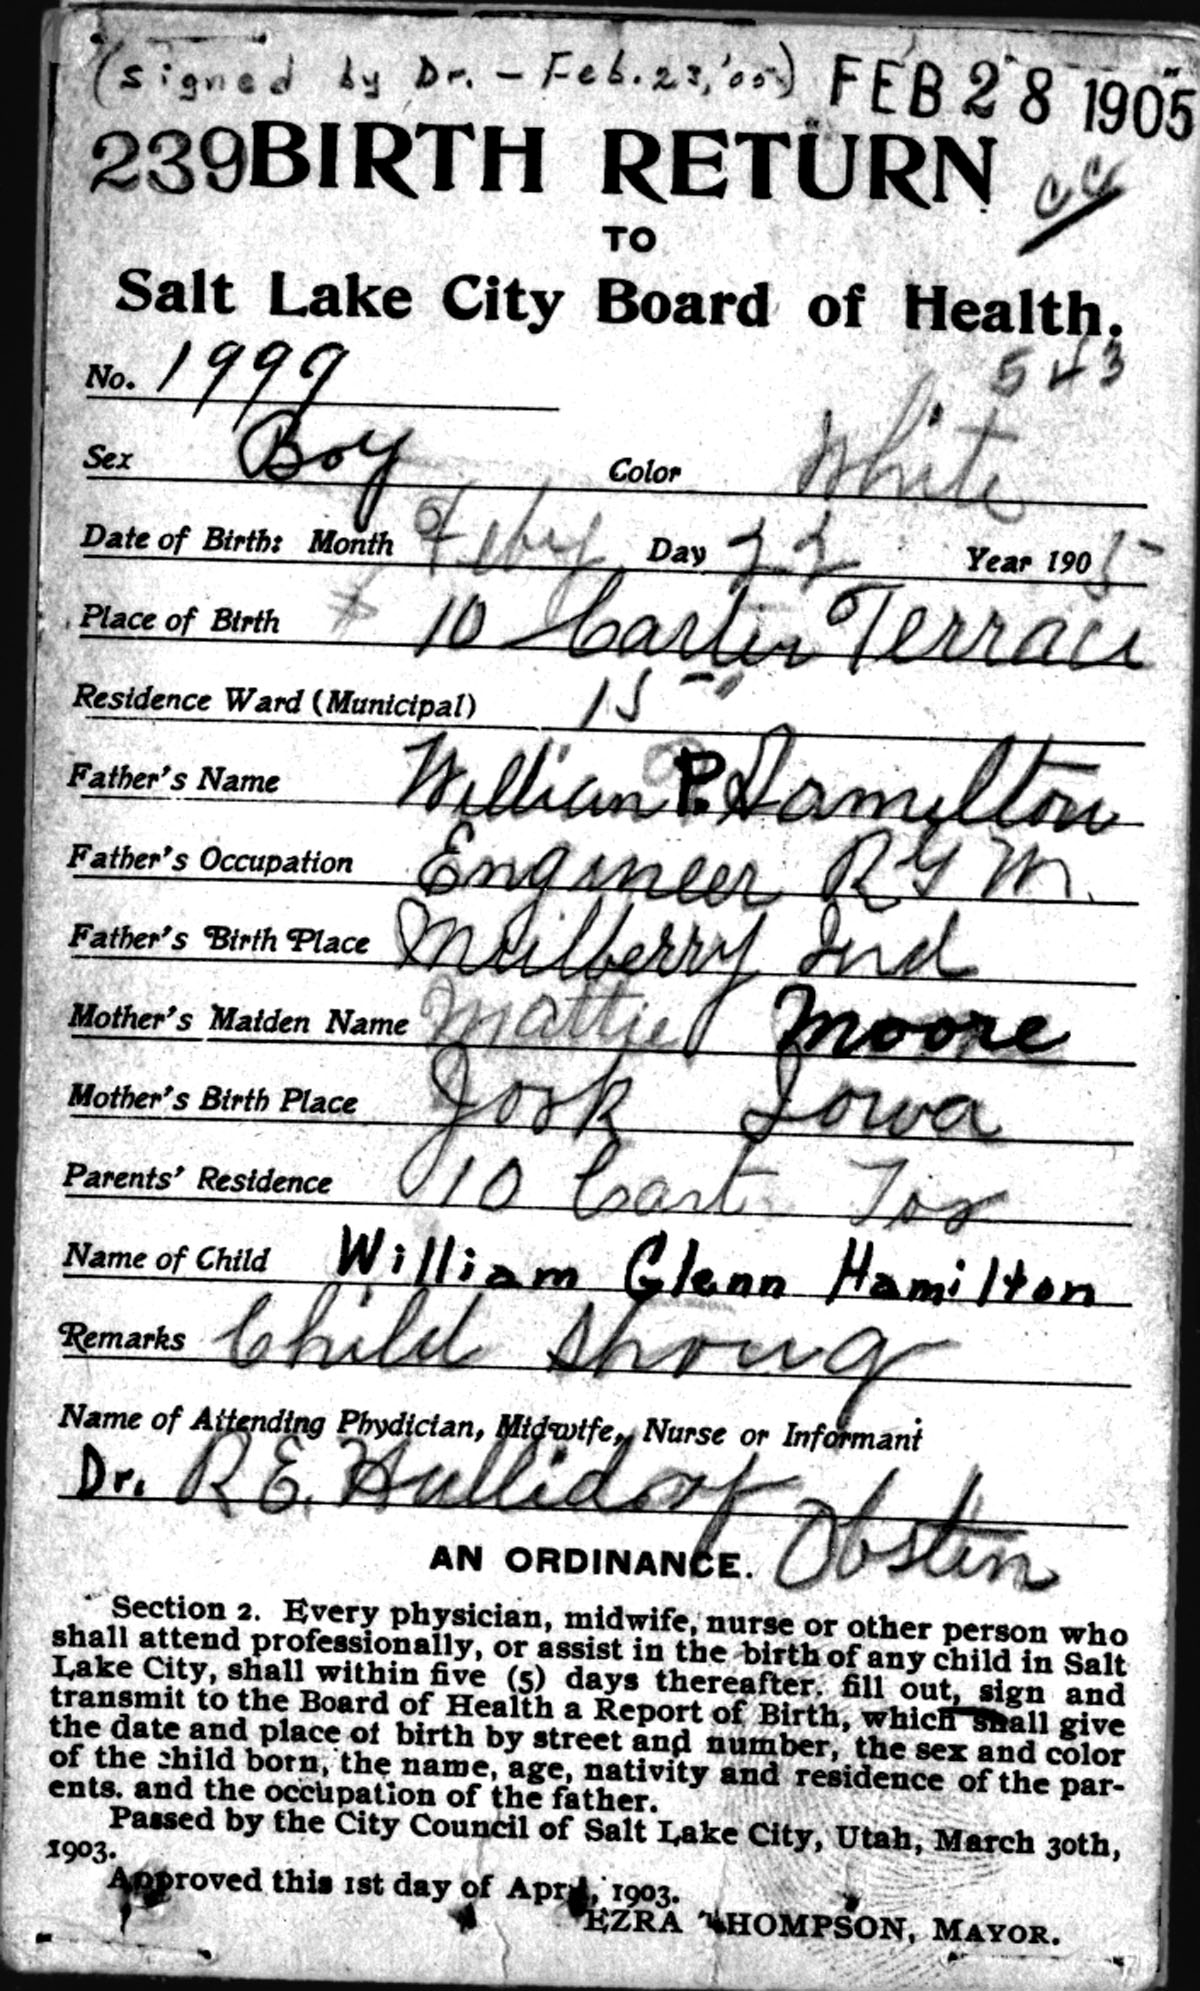 (signed by Dr. - Feb. 23, '05) FEB 28 1905
239 BIRTH RETURN
TO
Salt Lake City Board of Health.
543
No. 1999
Sex Boy Color White
Date of Birth: Month Feby Day 22 Year 1905
Place of Birth # 10 Carter Terrace
Residence Ward (Municipal) 15
Father's Name William P. Hamilton
Father's Occupation Engineer R G
Father's Birth Place Mulberry Ind
Mother's Maiden Name Mattie Moore
Mother's Birth Place York Iowa
Parents' Residence 10 Cart Ter
Name of Child William Glenn Hamilton
Remarks Child Strong
Name of Attending Phydician, Midwife, Nurse or Informant
Dr. R E.
AN ORDINANCE.
Section 2. Every physician, midwife, nurse or other person who
shall attend professionally, or assist in the birth of any child in Salt
Lake City, shall within five (5) days thereafter. fill out, sign and
transmit to the Board of Health a Report of Birth, which shall give
the date and place of birth by street and number, the sex and color
of the child born, the name, age, nativity and residence of the par-
ents. and the occupation of the father.
Passed by the City Council of Salt Lake City, Utah, March 30th,
1903.
Approved this 1st day of April, 1903.
EZRA THOMPSON, MAYOR.